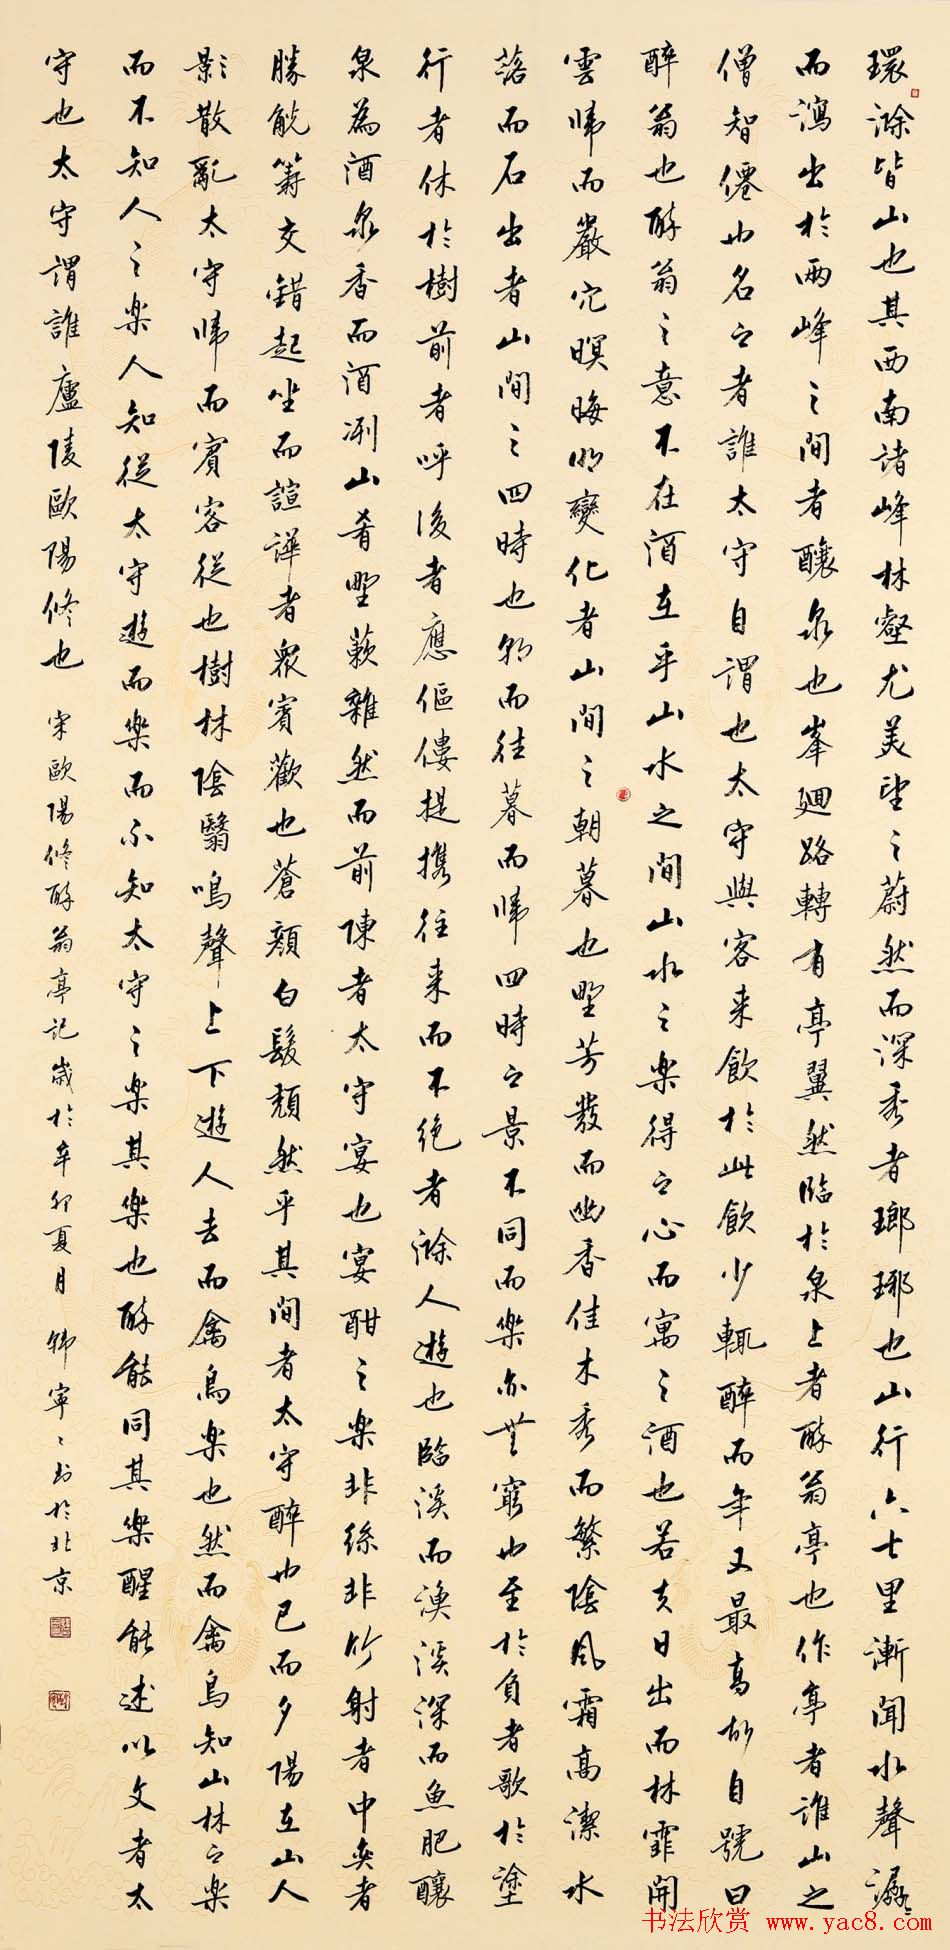 環滁皆山也其西南諸峰林壑尤美望之蔚然而深秀者瑯琊也山行六七里漸聞水聲潺〻
而瀉出於兩峰之間者釀泉也峯迴路轉有亭翼然臨於泉上者醉翁亭也作亭者誰山之
僧智僊也名之者誰太守自謂也太守與客来飲於此飲少輒醉而年又最高故自號曰
醉翁也醉翁之意不在酒在乎山水之間山水之樂得之心而寓之酒也若夫日出而林霏開
雲歸而巖穴暝晦明變化者山間之朝暮也野芳發而幽香佳木秀而繁陰風霜高潔水
落而石出者山間之四時也朝而往暮而歸四時之景不同而樂亦無窮也至於負者歌於塗
行者休於樹前者呼後者應傴僂提携往来而不绝者滁人遊也臨溪而漁溪深而魚肥釀
泉為酒泉香而酒洌山肴野蔌雜然而前陳者太守宴也宴酣之樂非絲非竹射者中奕者
勝觥籌交錯起坐而諠譁者衆賓歡也蒼顏白髮頹然乎其間者太守醉也已而夕陽在山人
影散亂太守歸而賓客從也樹林陰翳鳴聲上下遊人去而禽鳥樂也然而禽鳥知山林之樂
而不知人之樂人知從太守遊而樂而不知太守之樂其樂也醉能同其樂醒能述以文者太
守也太守謂誰廬陵歐陽修也 宋歐陽修醉翁亭記歲於辛卯夏月 韓寧〻書於北京
书法欣赏 www.yac8.com